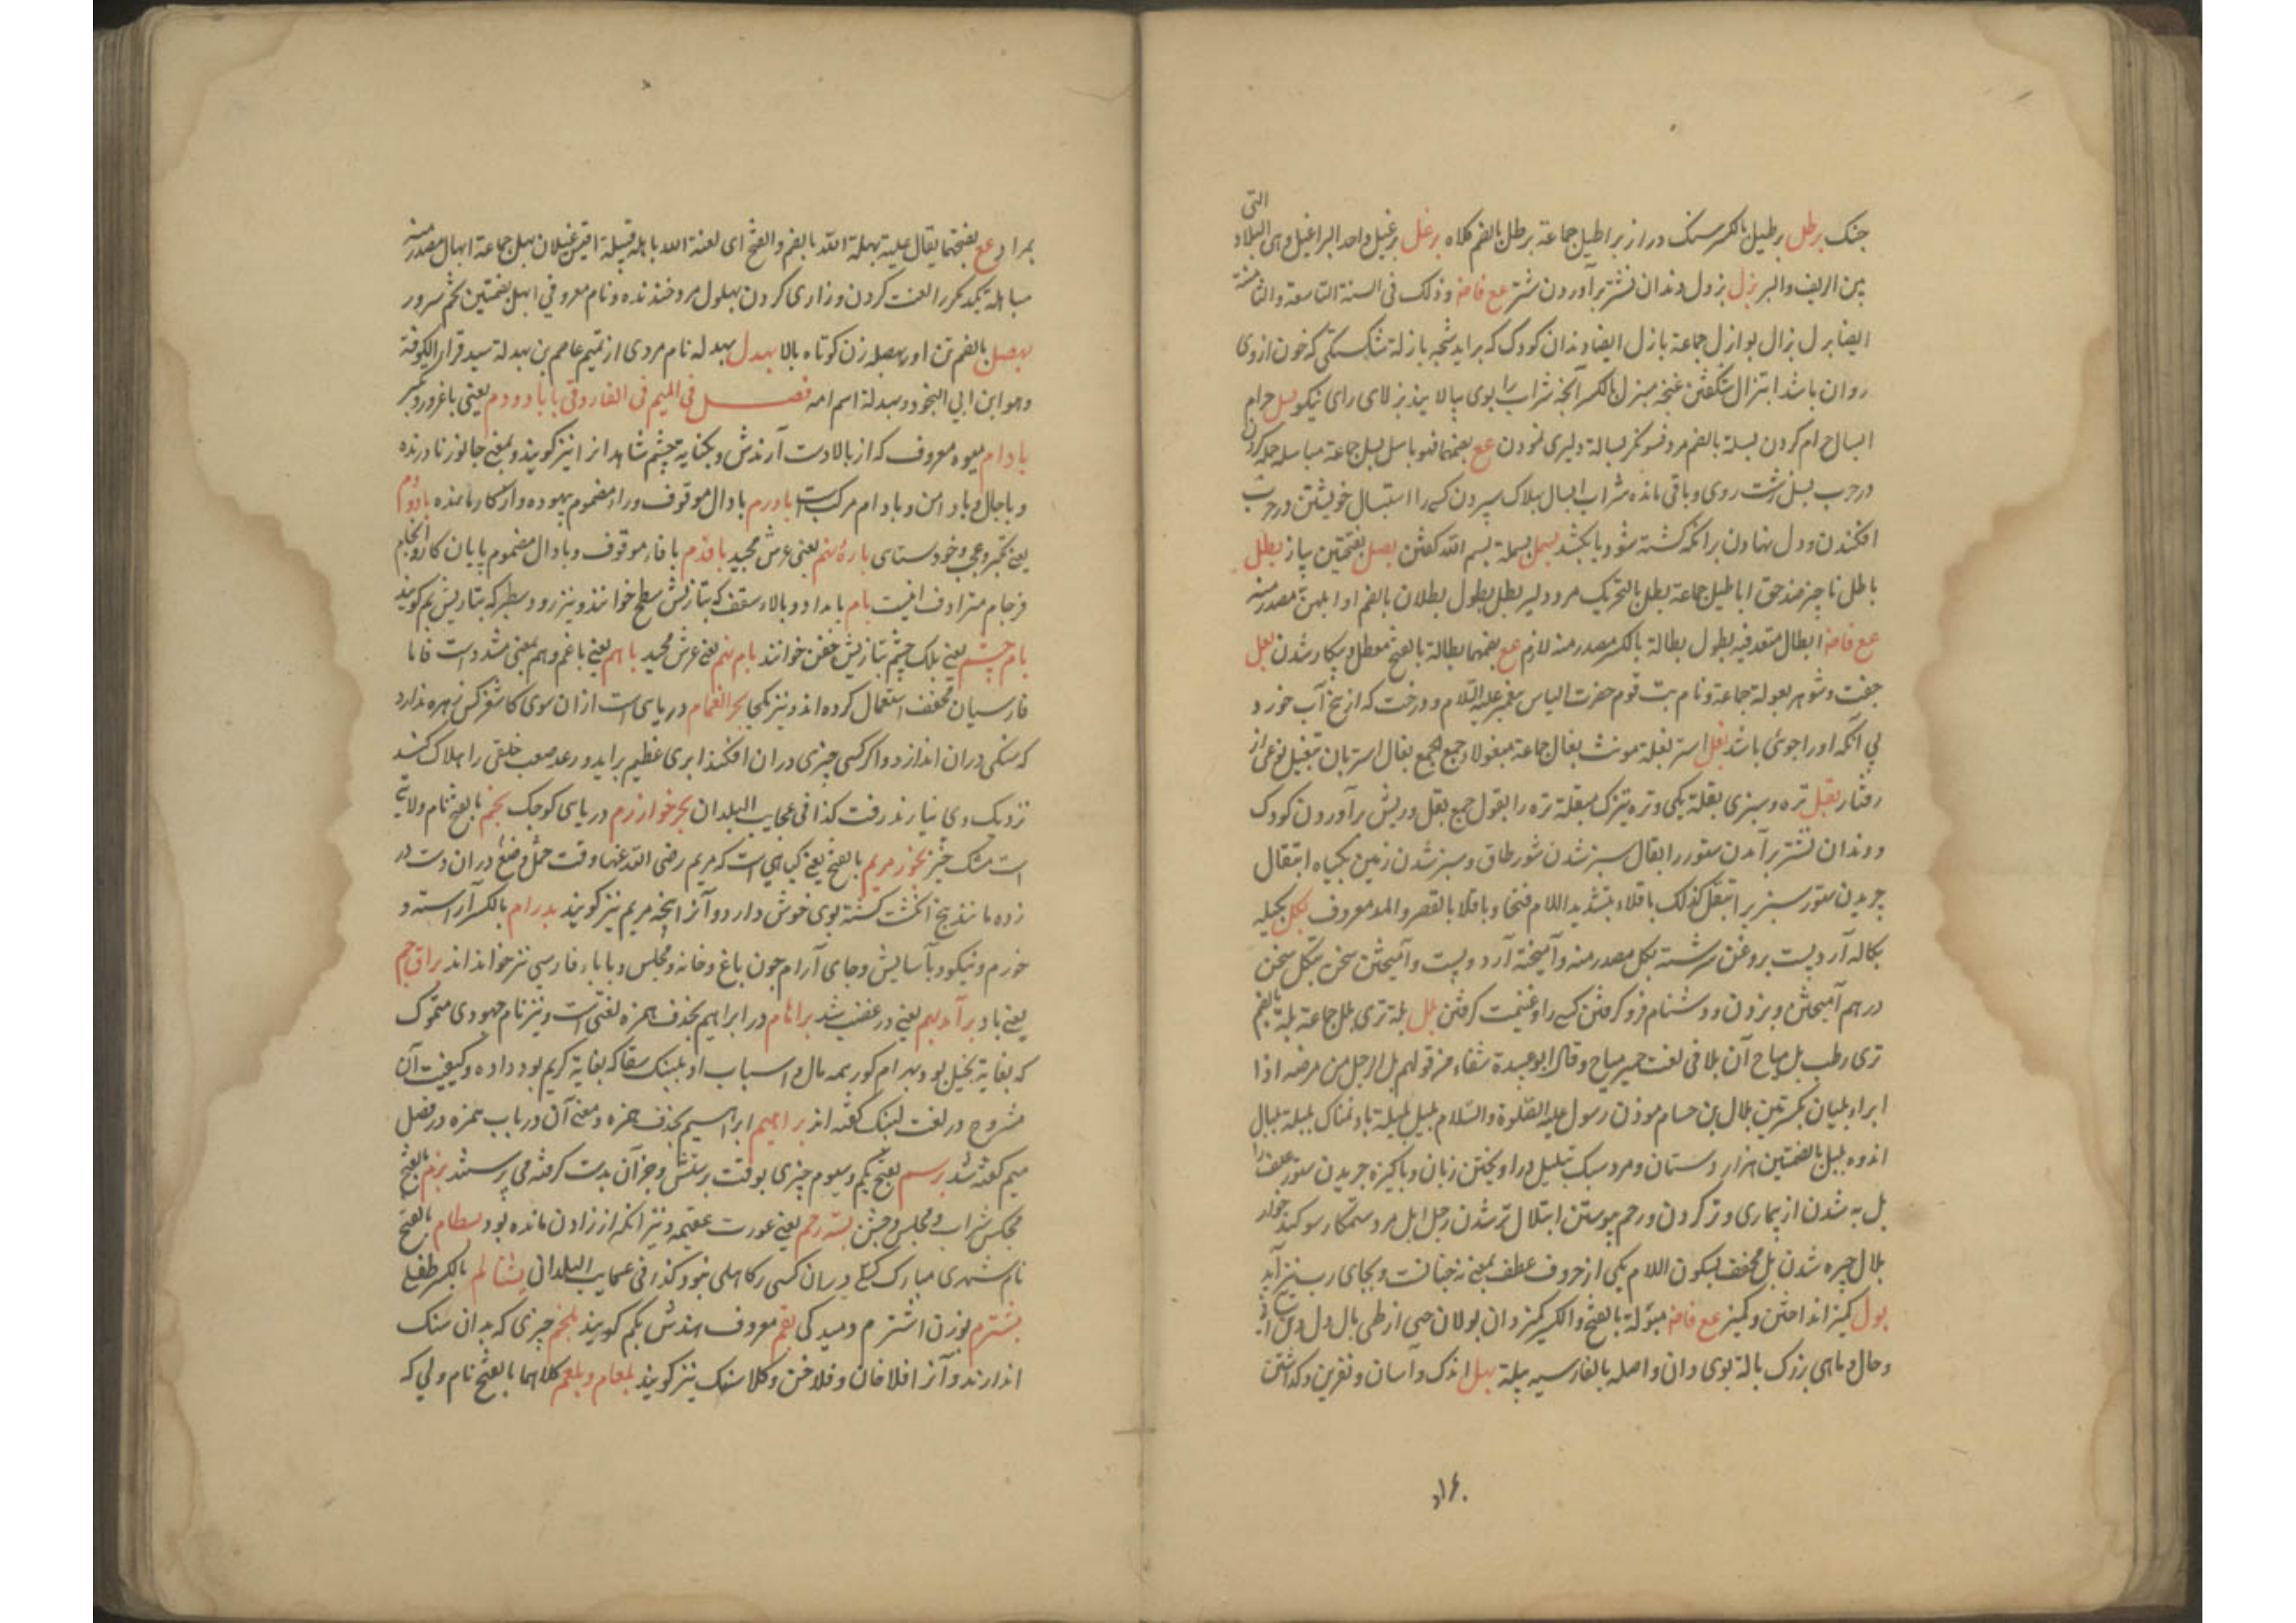 التی
جنک برطل برطیل بالکسر سنک دراز براطیل جماعة برطل بالضم کلاه برغل برغیل واحد البراغیل وهی البلاد
بین الریف والبر بزل بزول دندان نشتر برآوردن شتر عع فاضة وذلک فی السنة التاسعة والثامنة
ایضا بزل بزال بوازل جماعة بازل ایضا دندان کودک که براید شجه بازلة شکستکی که خون ازوی
روان باشد ابتزال شکفتن غنچه مبزل بالکسر آنچه شراب را بوی بپالایند بزلای رای نیکو بسل حرام
ابسال حرام کردن بسلة بالضم مزد فسونکر بسالة دلیری نمودن عع بضمهما فهو باسل بسل جماعة مباسله حمله کردن
درحرب بسل زشت روی وباقی مانده شراب ابسال بهلاک سپردن کسی را استبسال خویشتن درحرب
افکندن ودل نهادن برانکه کشته شود یا بکشد بسمل بسملة بسم الله کفتن بصل بفتحتین پیاز بطل
باطل ناچیز ضد حق اباطیل جماعة بطل بالتحریک مرد دلیر بطل بطول بطلان بالضم
عع فاضة ابطال متعد فیه بطول بطالة بالکسر مصدر منه لازم عع بضمهما بطالة بالفتح معطل وبیکار شدن بعل
جفت وشوهر بعولة جماعة ونام بت قوم حضرت الیاس پیغمبر علیه السلام ودرخت که از بیخ آب خورد
بی آنکه اورا جوی باشد بغل استر بغلة مونث بغال جماعة مبغولا وجمع الجمع بغال استربان تبغیل نوعی از
رفتار بقل تره وسبزی بقلة یکی وتره تیزک مبقلة تره را بقول جمع بقل وریش برآوردن کودک
ودندان نشتر برآمدن ستوررا ابقال سبز شدن شورطاق وسبز شدن زمین بکیاه ابتقال
چریدن ستور سبزیرا تبقل کذلک باقلاء بتشدید اللام فتحا وباقلا بالقصر والمد معروف بکل بکیله
بکاله آرد پست بروغن سرشته بکل مصدر منه وآمیخته آرد وپست وآمیختن سخن تبکل سخن
درهم آمیختن وبزدن ودشنام فرو کرفتن کسی را وغنیمت کرفتن بلل بلة تری بلل جماعة بلة بالضم
تری رطب بل مباح آن بلا فی لغت حمیر مباح وقال ابوعبیدة شفاء من قولهم بل الرجل من مرضه اذا
ابراء بلیان بکسرتین بلال بن حمام موذن رسول علیه الصلوة والسلام بلیل بلیلة باد نمناک بلبلة بلبال
اندوه بلبل بالضمتین هزار دستان ومرد سبک تبلبل درآویختن زبان وپاکیزه چریدن ستور علف را
بل به شدن از بیماری وتر کردن ورحم پیوستن ابتلال تر شدن رجل ابل مرد ستمکار سوکند خوار
بلال چیره شدن بل مخفف بسکون اللام یکی از حروف عطف بمعنی نه چنانست وبجای رب نیز آید
بول کمیز انداختن وکمیز عع فاضة مبولة بالفتح والکسر کمیزدان بولان حی از طی بال دل
وحال وماهی بزرک بالة بوی دان واصله بالفارسیه پیلة بهل اندک وآسان ونفرین وکذاشتن
بمراد عع بفتحهما یقال علیه بهلة الله بالضم والفتح ای لعنة الله باهلة قبیلة من قیس غیلان بهل جماعة ابهال مصدر منه
مباهلة یکدیکر را لعنت کردن وزاری کردن بهلول مرد خندنده ونام معروفی ابهل بضمتین تخم سرور
بهصل بالضم تن اور بهصله زن کوتاه بالا بهدل بهدله نام مردی از تمیم عاصم بن بهدلة سید قرار الکوفة
وهو ابن ابی النجود وبهدلة اسم امه فصل فی المیم فی الفارقی با بادودم یعنی باغرور وتکبر
بادام میوه معروف که از بالادست آرندش وبکنایه چشم شاهدانرا نیز کویند وبمعنی جانور نادرنده
وباجال وباد امن وبادام مرکبست بادرم بادال موقوف وراء مضموم بیهوده واز کار مانده بادوم
یعنی بتکبر وعجب وخودستای باره نهم یعنی عرش مجید بافدم بافاء موقوف وبادال مضموم پایان کار وانجام
فرجام مترادف انیست بام بامداد وبالاء سقف که بتازیش سطح خوانند ونیز رود سطبر که بتازیش بم کویند
بام چشم یعنی پلک چشم بتازیش جفن خوانند بام نهم یعنی عرش مجید باهم یعنی باغم وهم بمعنی مشدد است فاما
فارسیان مخفف استعمال کرده اند ونیز یکجا بحر الغمام دریای است از ان سوی کاشغر کس زهره ندارد
که سنکی دران اندازد واکر کسی چیزی دران افکند ابری عظیم براید ورعد صعب خلقی را هلاک کند
نزدیک وی نیارند رفت کذا فی عجایب البلدان بحر خوارزم دریای کوچک بخم بالفتح نام ولایتی
است مشک خیز بخور مریم بالفتح یعنی کیاهی است که مریم رضی الله عنها وقت حمل وضع دران دست در
زده مانند پنج انکشت کشته بوی خوش دارد وآنرا پنجه مریم نیز کویند بدرام بالکسر آراسته و
خورم ونیکو وبآسایش وجای آرام چون باغ وخانه ومجلس وباباء فارسی نیز خوانده اند براق جم
یعنی باد برآمد بهم یعنی در غضب شد براهام در ابراهیم بحذف همزه لغتی است ونیز نام جهودی متمول
که بغایت بخیل بود بهرام کور همه مال واسباب او بلنبک سقا که بغایة کریم بود داده وکیفیت آن
مشروح در لغت لنبک کفته اند براهیم ابراهیم بحذف همزه ومعنی آن در باب همزه در فصل
میم کفته شد برسم بفتح یکم وسیوم چیزی بوقت پرستش وجز آن بدست کرفته می پرستند بزم بالفتح
مجلس شراب ومجلس وجشن بسته رحم یعنی عورت عقیمه ونیز انکه از زادن مانده بود بسطام بالفتح
نام شهری مبارک کسی را کاهلی نبود کذا فی عجایب البلدان بشالم بالکسر طفیلی
بشترم بوزن اشترم دمیدکی بقم معروف هندش پکم کویند بلخم چیزی که بدان سنک
اندازند وآنرا فلاخان وفلاخن وکلاسنک نیز کویند بلعام وبلعم کلاهما بالفتح نام ولی که